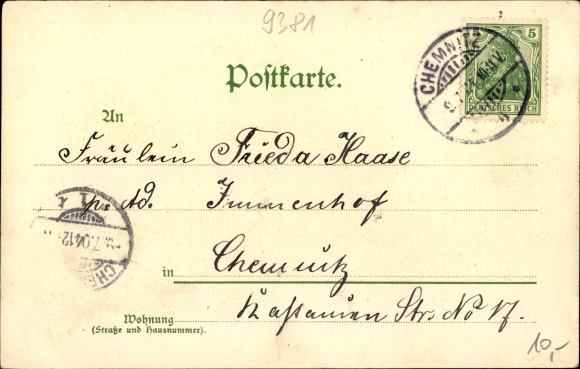 9381
5
DEUTSCHES REICH
CHEMNITZ
Postkarte.
An
Fräulein Frieda Haase
pr. Ad. Immenhof
in Chemnitz
Kastanien Str. No 17.
Wohnung
(Straße und Hausnummer).
7.04.12-
CHE
10,-